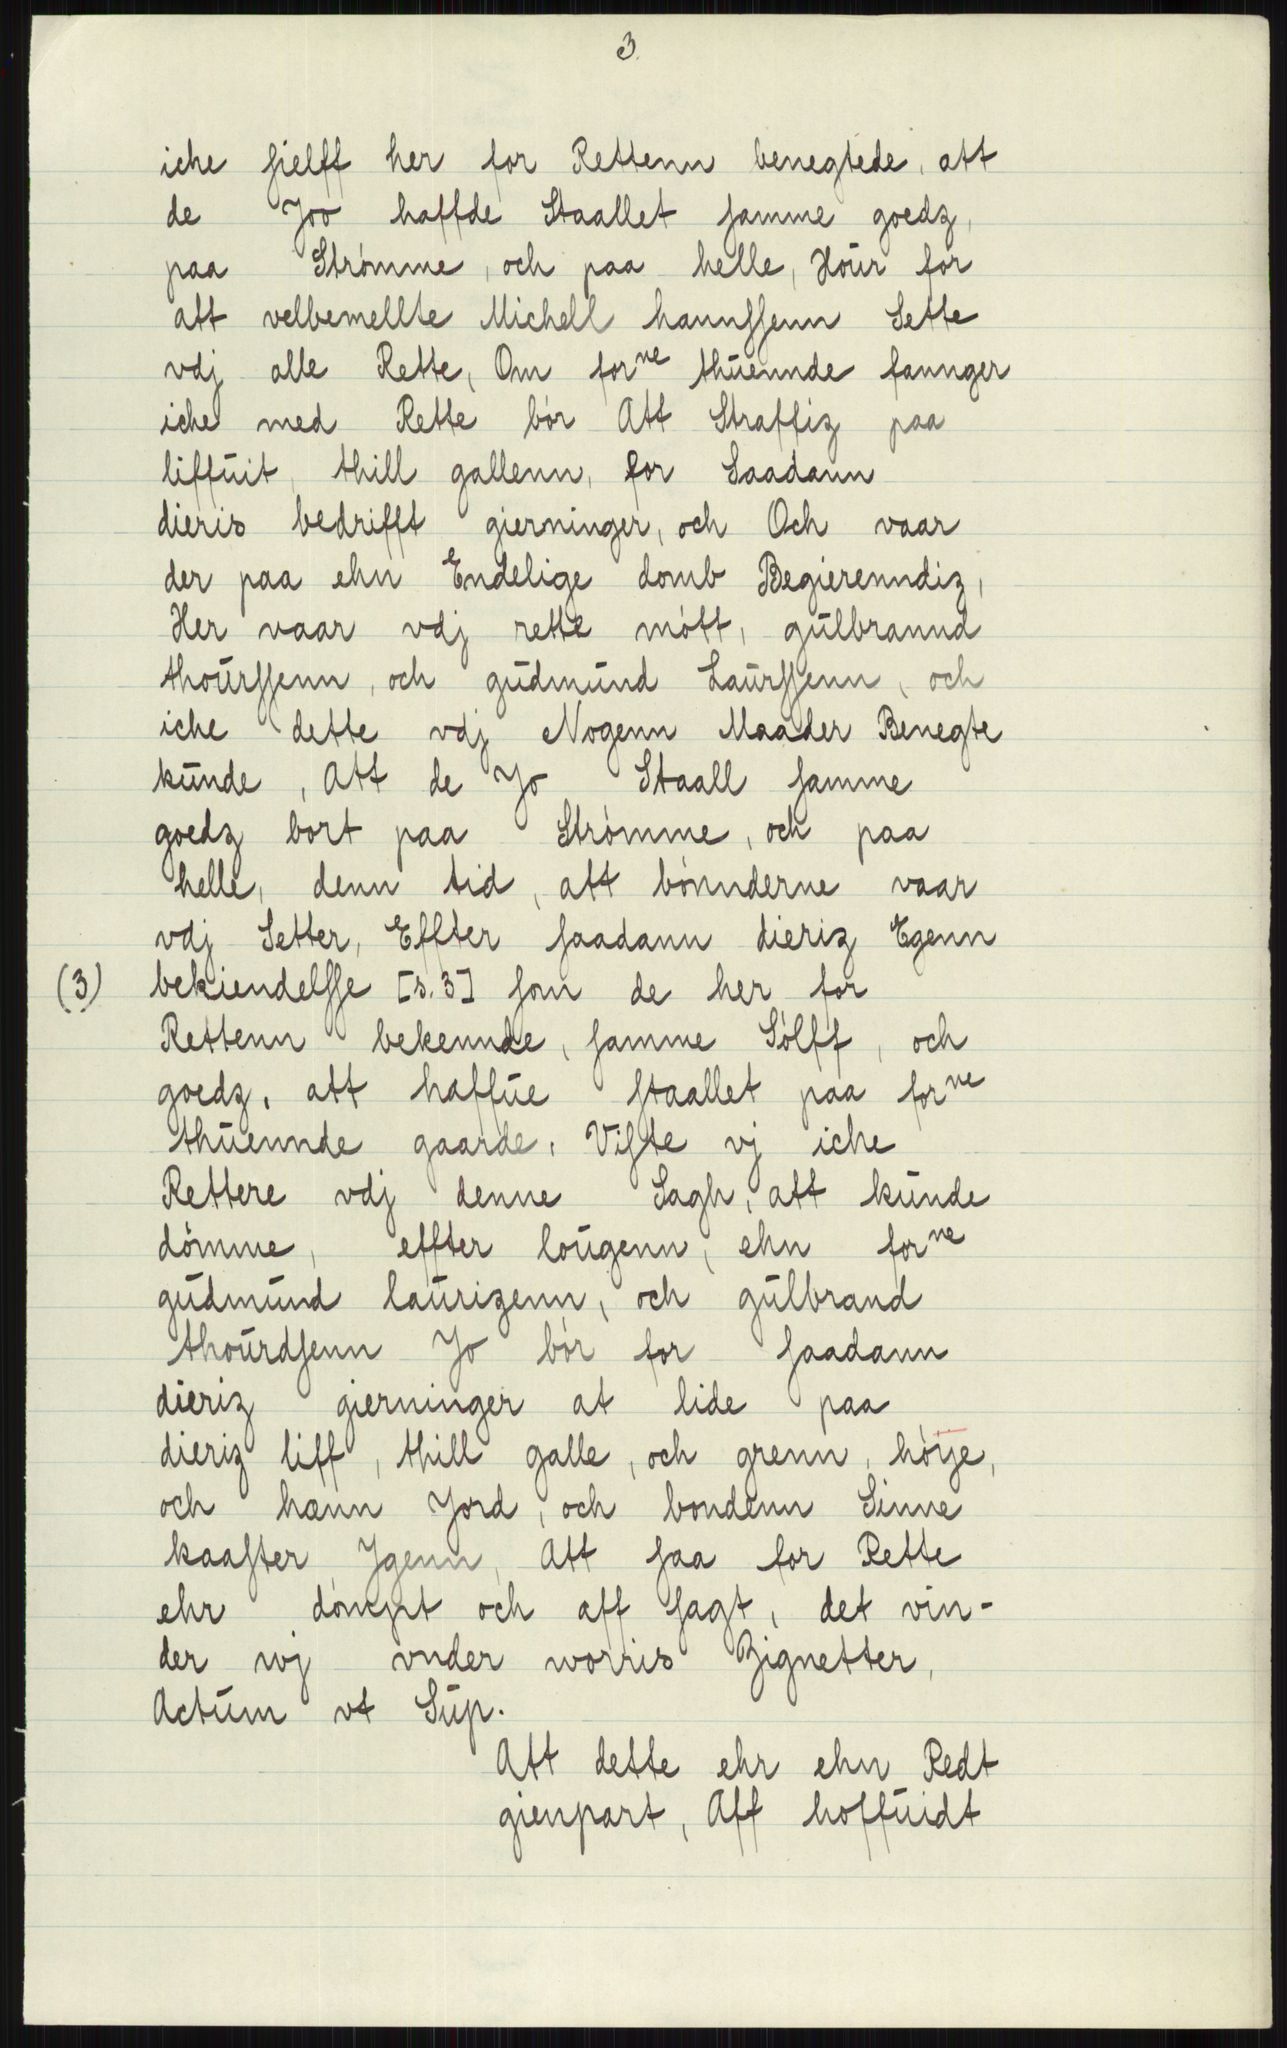 3
iche sielff her for Rettenn benegtede, att
de Joo haffde Staallet samme goedz,
paa Strømme, och paa helle, Hour for
att velbemellte Michell hannssenn Sette
vdj alle Rette, Om forne thuennde fannger
iche med Rette bør Att Straffiz paa
liffuit, thill gallenn, for Saadann
dieris bedrifft gierninger, och Och vaar
der paa ehn Endelige domb Begierenndiz,
Her vaar vdj rette mött, gulbrannd
thourssenn, och gudmund Laurssenn, och
iche dette vdj Nogenn Maader Benegte
kunde, Att de Jo Staall samme
goedz bort paa Strømme, och paa
helle, denn tid, att bønnderne vaar
vdj Setter, Effter saadann dieriz Egenn
(3) bekiendelsse [s. 3] som de her for
Rettenn bekennde, samme Sølff, och
goedz, att haffue staallet paa forne
thuennde gaarde, Viste vj iche
Rettere vdj denne Sagh, att kunde
dømme, effter lougenn, ehn forne
gudmund laurizenn, och gulbrand
thourdsenn Jo bør for saadann
dieriz gierninger at lide paa
dieriz liff, thill galle, och grenn, høye,
och hænn Jord, och bondenn Sinne
kaaster Jgenn, Att saa for Rette
ehr dømpt och aff sagt, det vin-
der wj vnder worris Zignetter,
Actum vt Sup.
Att dette ehr ehn Redt
gienpart, Aff hoffuidt